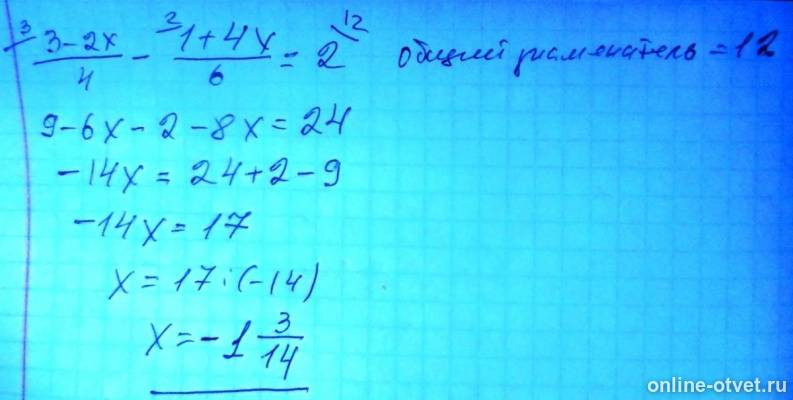 ³ 3-2x/4 - ² 1+4x/6 = 2 ¹² общий знаменатель = 12
9-6x-2-8x=24
-14x=24+2-9
-14x=17
x=17:(-14)
x=-1 3/14
online-otvet.ru